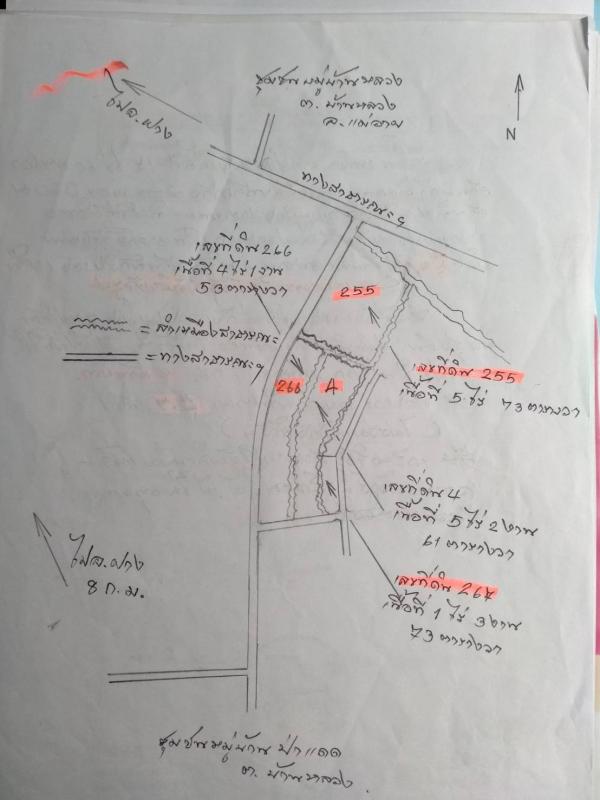 ชุมชนหมู่บ้านหลวง
ต. บ้านหลวง
อ. แม่อาย
ไปอ.ฝาง
N
ทางสาธารณะฯ
เลขที่ดิน 266
เนื้อที่ 4 ไร่ 1 งาน
53 ตารางวา
255
= ลำเหมืองสาธารณะ
= ทางสาธารณะฯ
266
4
เลขที่ดิน 255
เนื้อที่ 5 ไร่ 73 ตารางวา
เลขที่ดิน 4
เนื้อที่ 5 ไร่ 2 งาน
61 ตารางวา
ไปอ.ฝาง
8 ก.ม.
เลขที่ดิน 267
เนื้อที่ 1 ไร่ 3 งาน
73 ตารางวา
ชุมชนหมู่บ้าน ป่าแดด
ต. บ้านหลวง